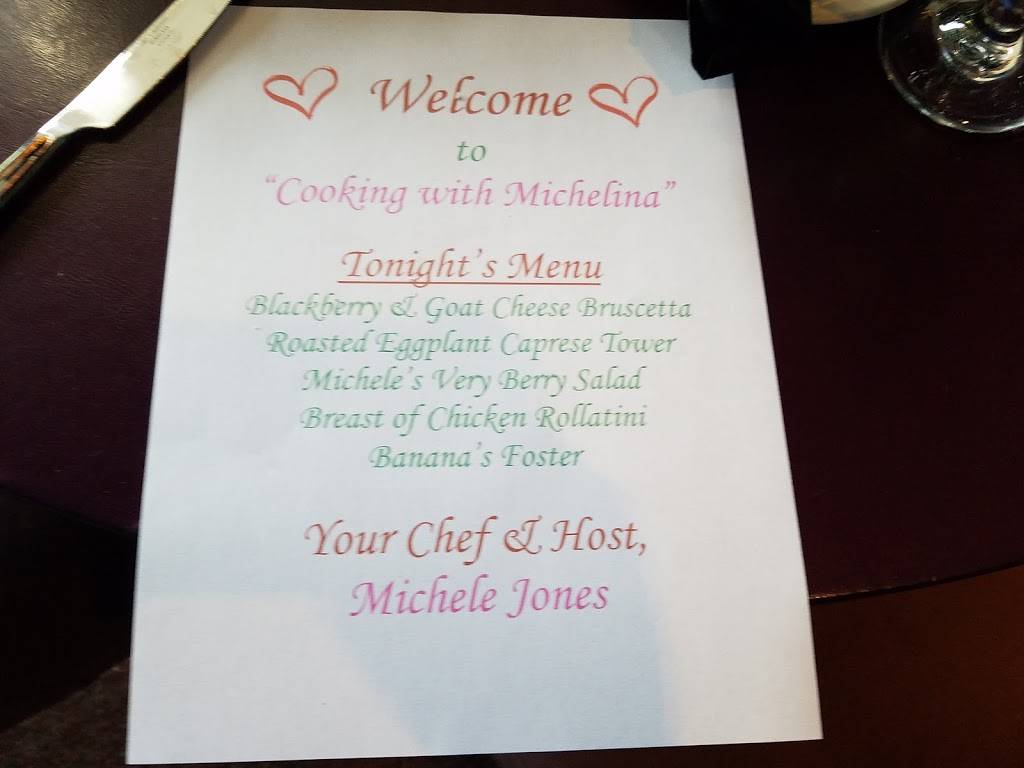 Welcome
to
“Cooking with Michelina”
Tonight’s Menu
Blackberry & Goat Cheese Bruscetta
Roasted Eggplant Caprese Tower
Michele’s Very Berry Salad
Breast of Chicken Rollatini
Banana’s Foster
Your Chef & Host,
Michele Jones